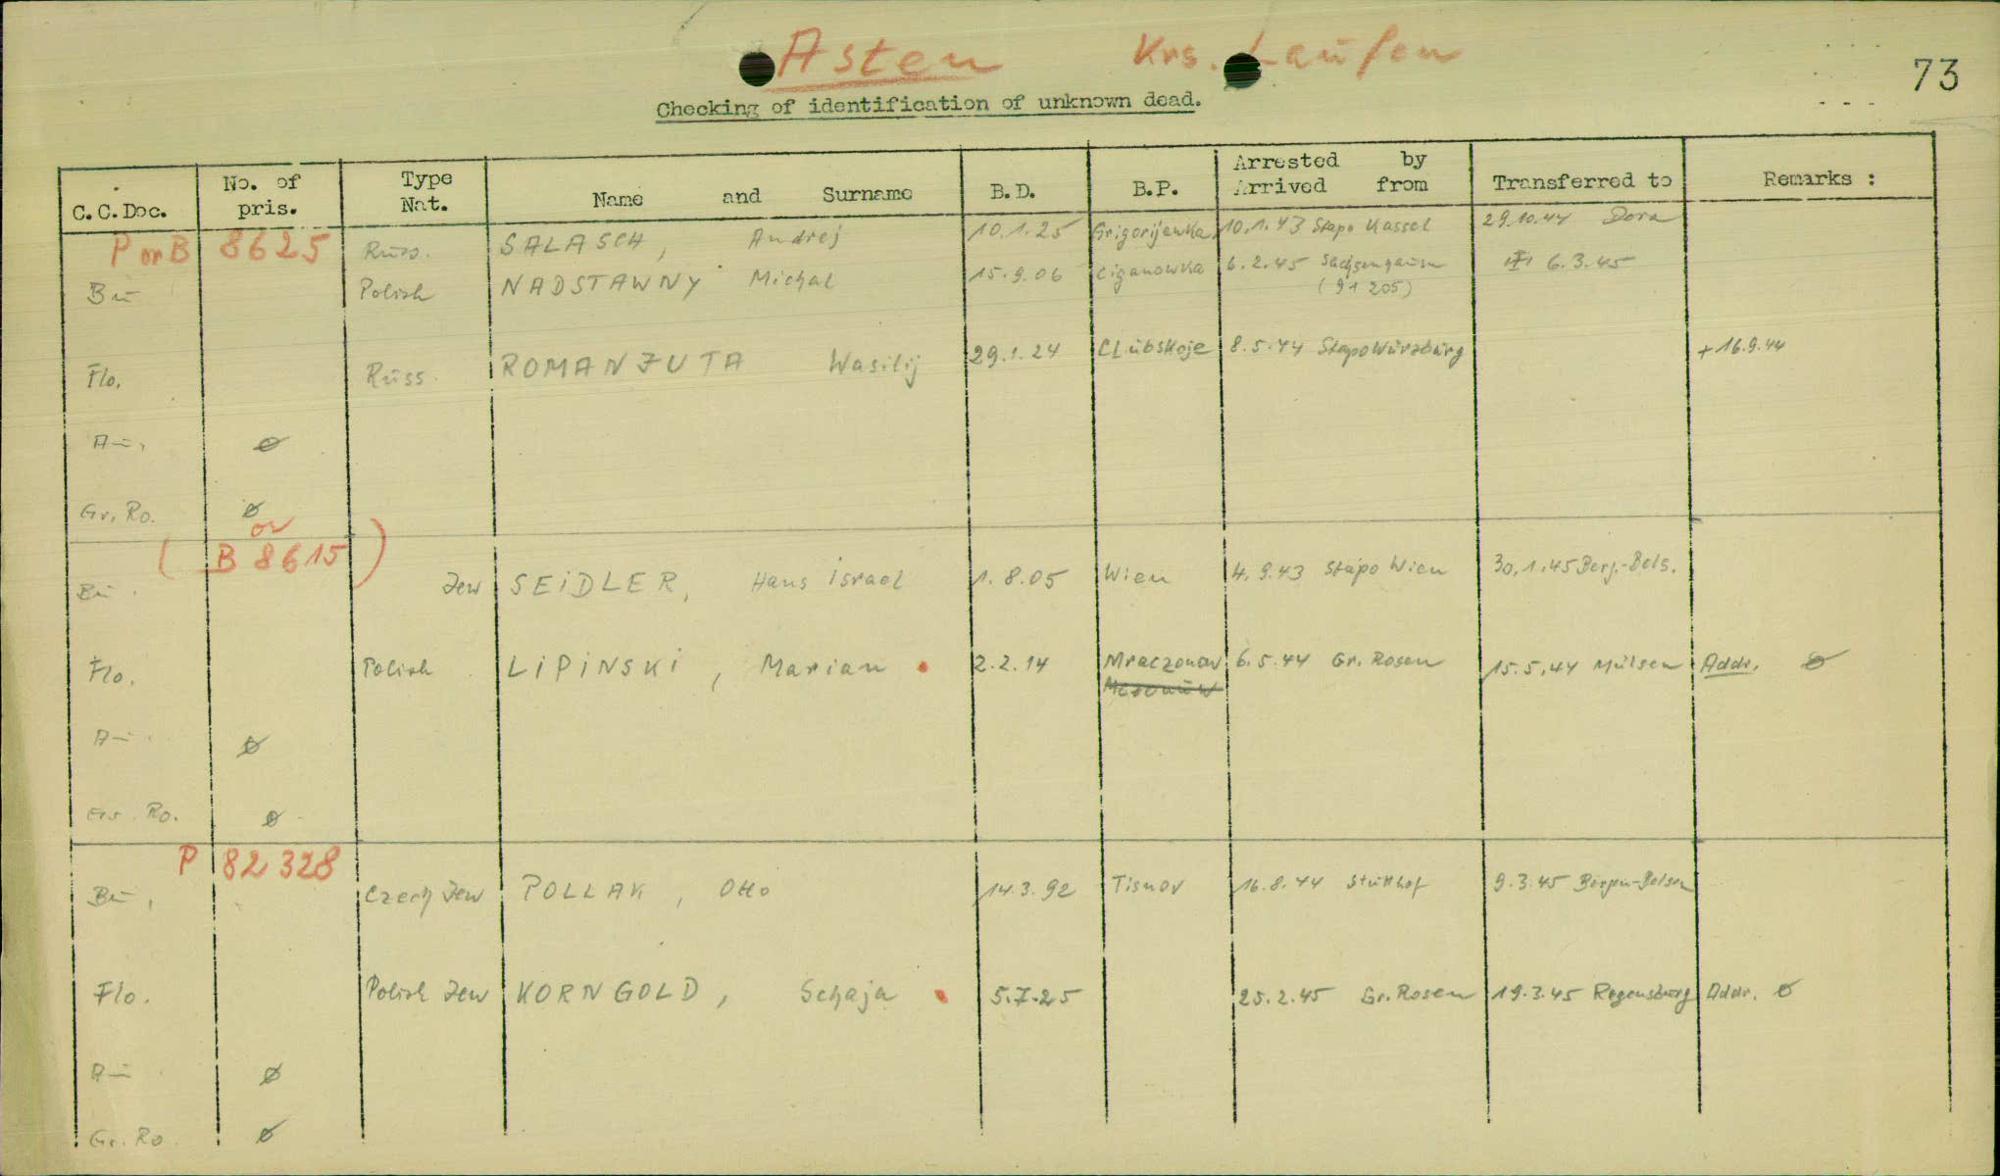 Asten Krs. Laufen
73
Checking of identification of unknown dead.
C.C.Doc. No. of pris. Type Nat. Name and Surname B.D. B.P. Arrested by Arrived from Transferred to Remarks :
P or B 8625 Russ. SALASCH, Andrej 10.1.25 Grigorijewka 10.1.43 Stapo Kassel 29.10.44 Dora
Bu Polish NADSTAWNY Michal 15.9.06 Ciganowka 6.2.45 Sachsenhausen 6.3.45
(91 205)
Flo. Russ. ROMANZUTA Wasilij 29.1.24 8.5.44 Stapo Würzburg + 16.9.44
Au. ø
Gr. Ro. ø
or
( B 8615 )
Bu. Jew SEIDLER, Hans Israel 1.8.05 Wien 4.9.43 Stapo Wien 30.1.45 Berg.-Bels.
Flo. Polish LIPINSKI, Marian 2.2.14 Mraczonow 6.5.44 Gr. Rosen 15.5.44 Mülsen Addr. ø
Au. ø
Gr. Ro. ø
P 82328
Bu. Czech Jew POLLAK, Otto 14.3.92 Tisnov 16.8.44 Stutthof 9.3.45 Bergen-Belsen
Flo. Polish Jew KORNGOLD, Schaja 5.7.25 25.2.45 Gr. Rosen 19.3.45 Regensburg Addr. ø
Au ø
Gr. Ro. ø